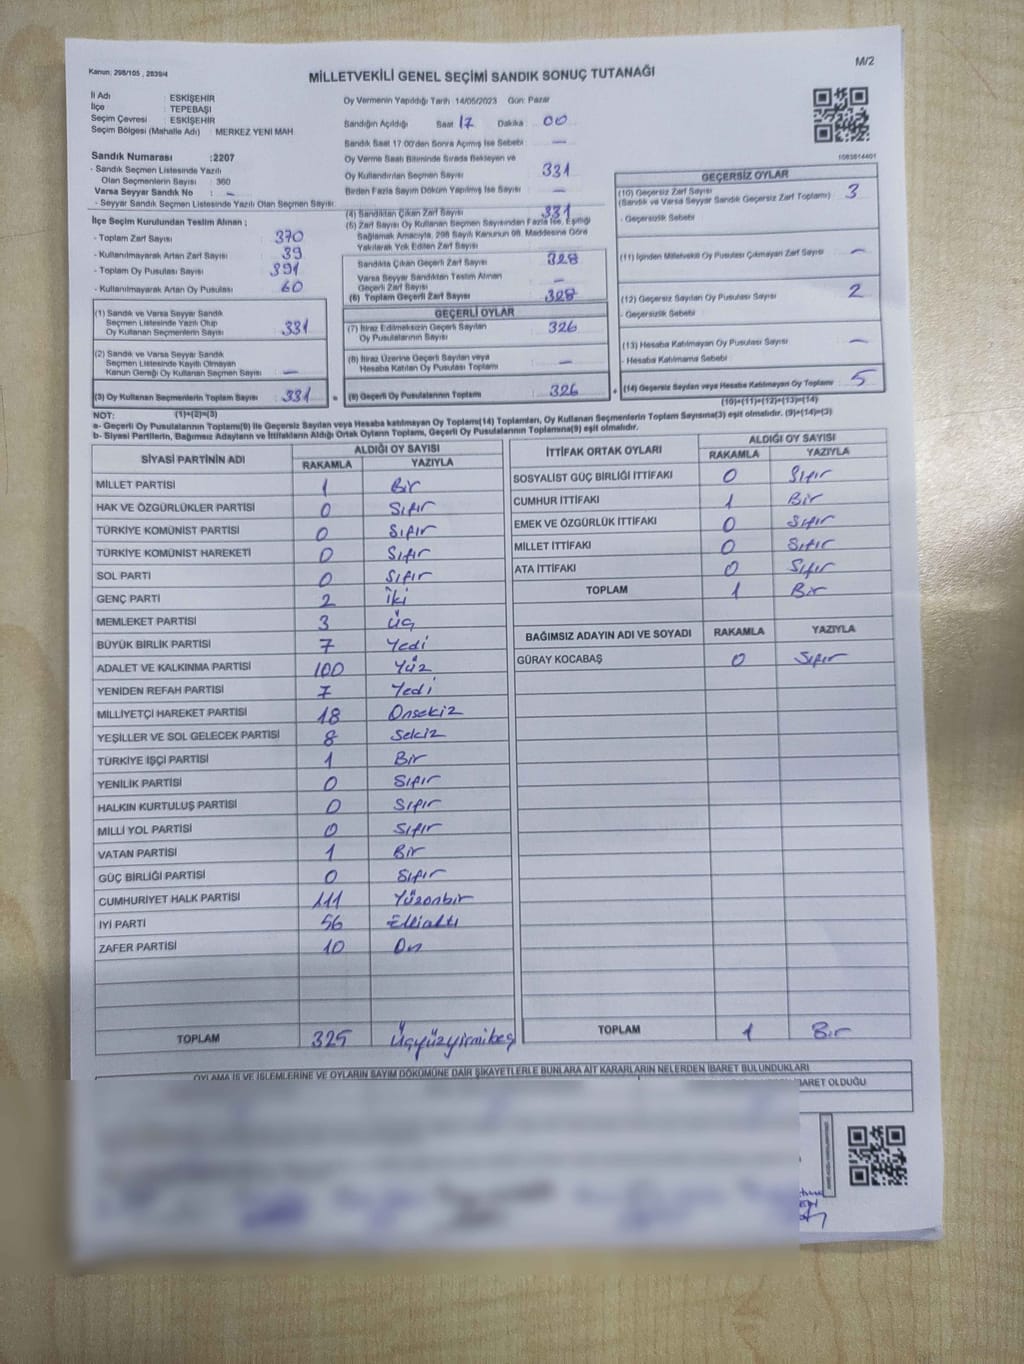 Kanun: 298/105 , 2839/4
M/2
MİLLETVEKİLİ GENEL SEÇİMİ SANDIK SONUÇ TUTANAĞI
İl Adı : ESKİŞEHİR
İlçe : TEPEBAŞI
Seçim Çevresi : ESKİŞEHİR
Seçim Bölgesi (Mahalle Adı) : MERKEZ YENİ MAH
Sandık Numarası :2207
- Sandık Seçmen Listesinde Yazılı
Olan Seçmenlerin Sayısı : 360
Varsa Seyyar Sandık No : -
- Seyyar Sandık Seçmen Listesinde Yazılı Olan Seçmen Sayısı:
İlçe Seçim Kurulundan Teslim Alınan ;
- Toplam Zarf Sayısı : 370
- Kullanılmayarak Artan Zarf Sayısı : 39
- Toplam Oy Pusulası Sayısı : 391
- Kullanılmayarak Artan Oy Pusulası : 60
(1) Sandık ve Varsa Seyyar Sandık
Seçmen Listesinde Yazılı Olup
Oy Kullanan Seçmenlerin Sayısı : 331
(2) Sandık ve Varsa Seyyar Sandık
Seçmen Listesinde Kayıtlı Olmayan
Kanun Gereği Oy Kullanan Seçmen Sayısı : -
(3) Oy Kullanan Seçmenlerin Toplam Sayısı : 331
Oy Vermenin Yapıldığı Tarih :14/05/2023 Gün: Pazar
Sandığın Açıldığı Saat 17 Dakika : 00
Sandık Saat 17.00'den Sonra Açılmış İse Sebebi : -
Oy Verme Saati Bitiminde Sırada Bekleyen ve
Oy Kullandırılan Seçmen Sayısı : 331
Birden Fazla Sayım Döküm Yapılmış İse Sayısı : -
(4) Sandıktan Çıkan Zarf Sayısı : 331
(5) Zarf Sayısı Oy Kullanan Seçmen Sayısından Fazla İse, Eşitliği
Sağlamak Amacıyla, 298 Sayılı Kanunun 98. Maddesine Göre
Yakılarak Yok Edilen Zarf Sayısı
Sandıkta Çıkan Geçerli Zarf Sayısı : 328
Varsa Seyyar Sandıktan Teslim Alınan
Geçerli Zarf Sayısı : -
(6) Toplam Geçerli Zarf Sayısı : 328
GEÇERLİ OYLAR
(7) İtiraz Edilmeksizin Geçerli Sayılan
Oy Pusulalarının Sayısı : 326
(8) İtiraz Üzerine Geçerli Sayılan veya
Hesaba Katılan Oy Pusulası Toplamı : -
(9) Geçerli Oy Pusulalarının Toplamı : 326
1083814401
GEÇERSİZ OYLAR
(10) Geçersiz Zarf Sayısı : 3
(Sandık ve Varsa Seyyar Sandık Geçersiz Zarf Toplamı)
- Geçersizlik Sebebi
(11) İçinden Milletvekili Oy Pusulası Çıkmayan Zarf Sayısı : -
(12) Geçersiz Sayılan Oy Pusulası Sayısı : 2
- Geçersizlik Sebebi
(13) Hesaba Katılmayan Oy Pusulası Sayısı : -
- Hesaba Katılmama Sebebi
(14) Geçersiz Sayılan veya Hesaba Katılmayan Oy Toplamı : 5
(10)+(11)+(12)+(13)=(14)
NOT: (1)+(2)=(3)
a- Geçerli Oy Pusulalarının Toplamı(9) ile Geçersiz Sayılan veya Hesaba katılmayan Oy Toplamı(14) Toplamları, Oy Kullanan Seçmenlerin Toplam Sayısına(3) eşit olmalıdır. (9)+(14)=(3)
b- Siyasi Partilerin, Bağımsız Adayların ve İttifakların Aldığı Ortak Oyların Toplamı, Geçerli Oy Pusulalarının Toplamına(9) eşit olmalıdır.
SİYASİ PARTİNİN ADI ALDIĞI OY SAYISI
RAKAMLA YAZIYLA
MİLLET PARTİSİ 1 Bir
HAK VE ÖZGÜRLÜKLER PARTİSİ 0 Sıfır
TÜRKİYE KOMÜNİST PARTİSİ 0 Sıfır
TÜRKİYE KOMÜNİST HAREKETİ 0 Sıfır
SOL PARTİ 0 Sıfır
GENÇ PARTİ 2 İki
MEMLEKET PARTİSİ 3 Üç
BÜYÜK BİRLİK PARTİSİ 7 Yedi
ADALET VE KALKINMA PARTİSİ 100 Yüz
YENİDEN REFAH PARTİSİ 7 Yedi
MİLLİYETÇİ HAREKET PARTİSİ 18 Onsekiz
YEŞİLLER VE SOL GELECEK PARTİSİ 8 Sekiz
TÜRKİYE İŞÇİ PARTİSİ 1 Bir
YENİLİK PARTİSİ 0 Sıfır
HALKIN KURTULUŞ PARTİSİ 0 Sıfır
MİLLİ YOL PARTİSİ 0 Sıfır
VATAN PARTİSİ 1 Bir
GÜÇ BİRLİĞİ PARTİSİ 0 Sıfır
CUMHURİYET HALK PARTİSİ 111 Yüzonbir
İYİ PARTİ 56 Ellialtı
ZAFER PARTİSİ 10 On
TOPLAM 325 Üçyüzyirmibeş
İTTİFAK ORTAK OYLARI ALDIĞI OY SAYISI
RAKAMLA YAZIYLA
SOSYALIST GÜÇ BİRLİĞİ İTTİFAKI 0 Sıfır
CUMHUR İTTİFAKI 1 Bir
EMEK VE ÖZGÜRLÜK İTTİFAKI 0 Sıfır
MİLLET İTTİFAKI 0 Sıfır
ATA İTTİFAKI 0 Sıfır
TOPLAM 1 Bir
BAĞIMSIZ ADAYIN ADI VE SOYADI RAKAMLA YAZIYLA
GÜRAY KOCABAŞ 0 Sıfır
TOPLAM 1 Bir
OYLAMA İŞ VE İŞLEMLERİNE VE OYLARIN SAYIM DÖKÜMÜNE DAİR ŞİKAYETLERLE BUNLARA AİT KARARLARIN NELERDEN İBARET BULUNDUKLARI
BARET OLDUĞU